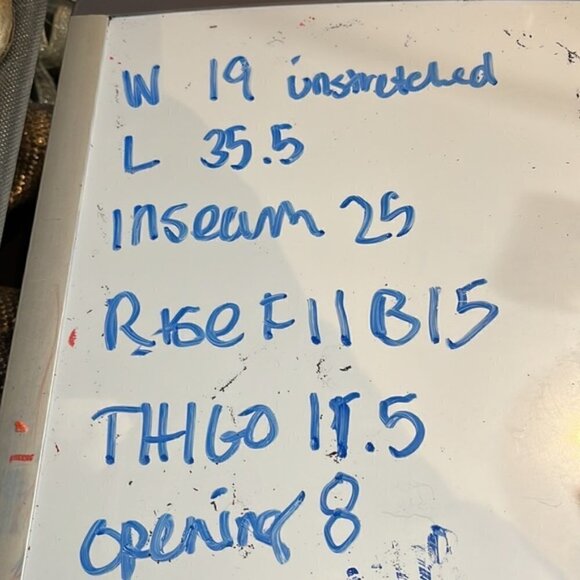 W 19 unstretched
L 35.5
Inseam 25
Rise F11 B15
THIGO
opening 8